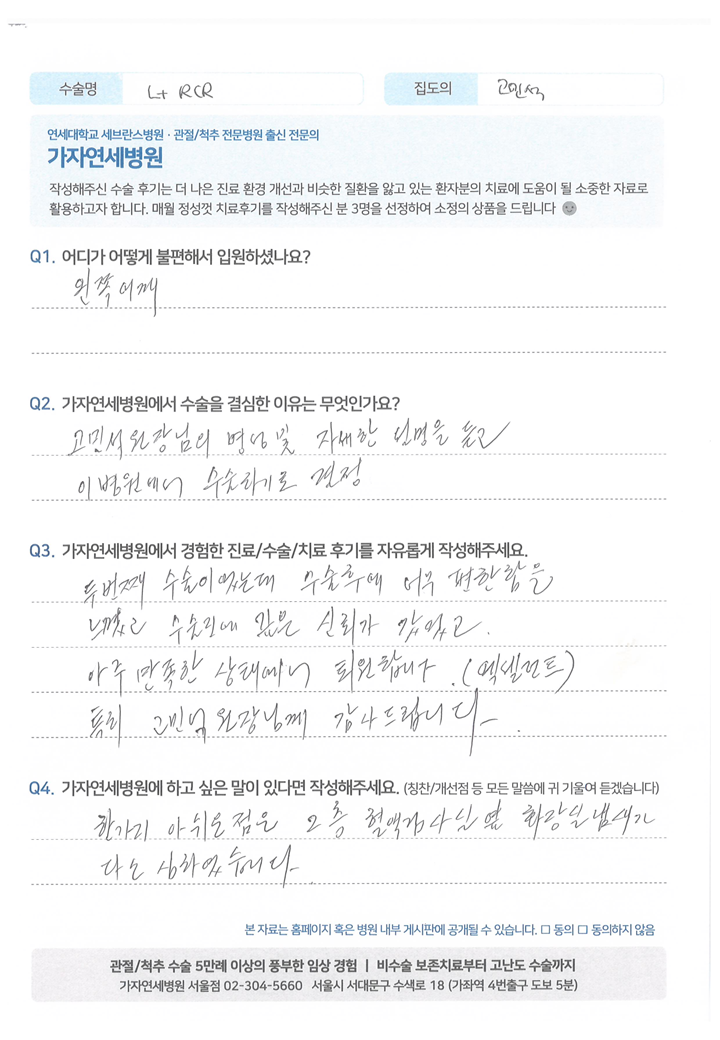 수술명 Lt RCR 집도의 고민석
연세대학교 세브란스병원 · 관절/척추 전문병원 출신 전문의
가자연세병원
작성해주신 수술 후기는 더 나은 진료 환경 개선과 비슷한 질환을 앓고 있는 환자분의 치료에 도움이 될 소중한 자료로
활용하고자 합니다. 매월 정성껏 치료후기를 작성해주신 분 3명을 선정하여 소정의 상품을 드립니다
Q1. 어디가 어떻게 불편해서 입원하셨나요?
왼쪽어깨
Q2. 가자연세병원에서 수술을 결심한 이유는 무엇인가요?
고민석원장님의 명성및 자세한 설명을 듣고
이병원에서 수술하기로 결정
Q3. 가자연세병원에서 경험한 진료/수술/치료 후기를 자유롭게 작성해주세요.
두번째 수술이었는데 수술후에 너무 편한함을
느꼈고 깊은 신뢰가 갔었고.
아주 만족한 상태에서 퇴원합니다. (엑셀런트)
특히 고민석원장님께 감사드립니다.
Q4. 가자연세병원에 하고 싶은 말이 있다면 작성해주세요. (칭찬/개선점 등 모든 말씀에 귀 기울여 듣겠습니다)
한가지 아쉬운점은 2층 혈액검사실옆 화장실냄새가
다소 심하였습니다.
본 자료는 홈페이지 혹은 병원 내부 게시판에 공개될 수 있습니다. □ 동의 □ 동의하지 않음
관절/척추 수술 5만례 이상의 풍부한 임상 경험 | 비수술 보존치료부터 고난도 수술까지
가자연세병원 서울점 02-304-5660 서울시 서대문구 수색로 18 (가좌역 4번출구 도보 5분)